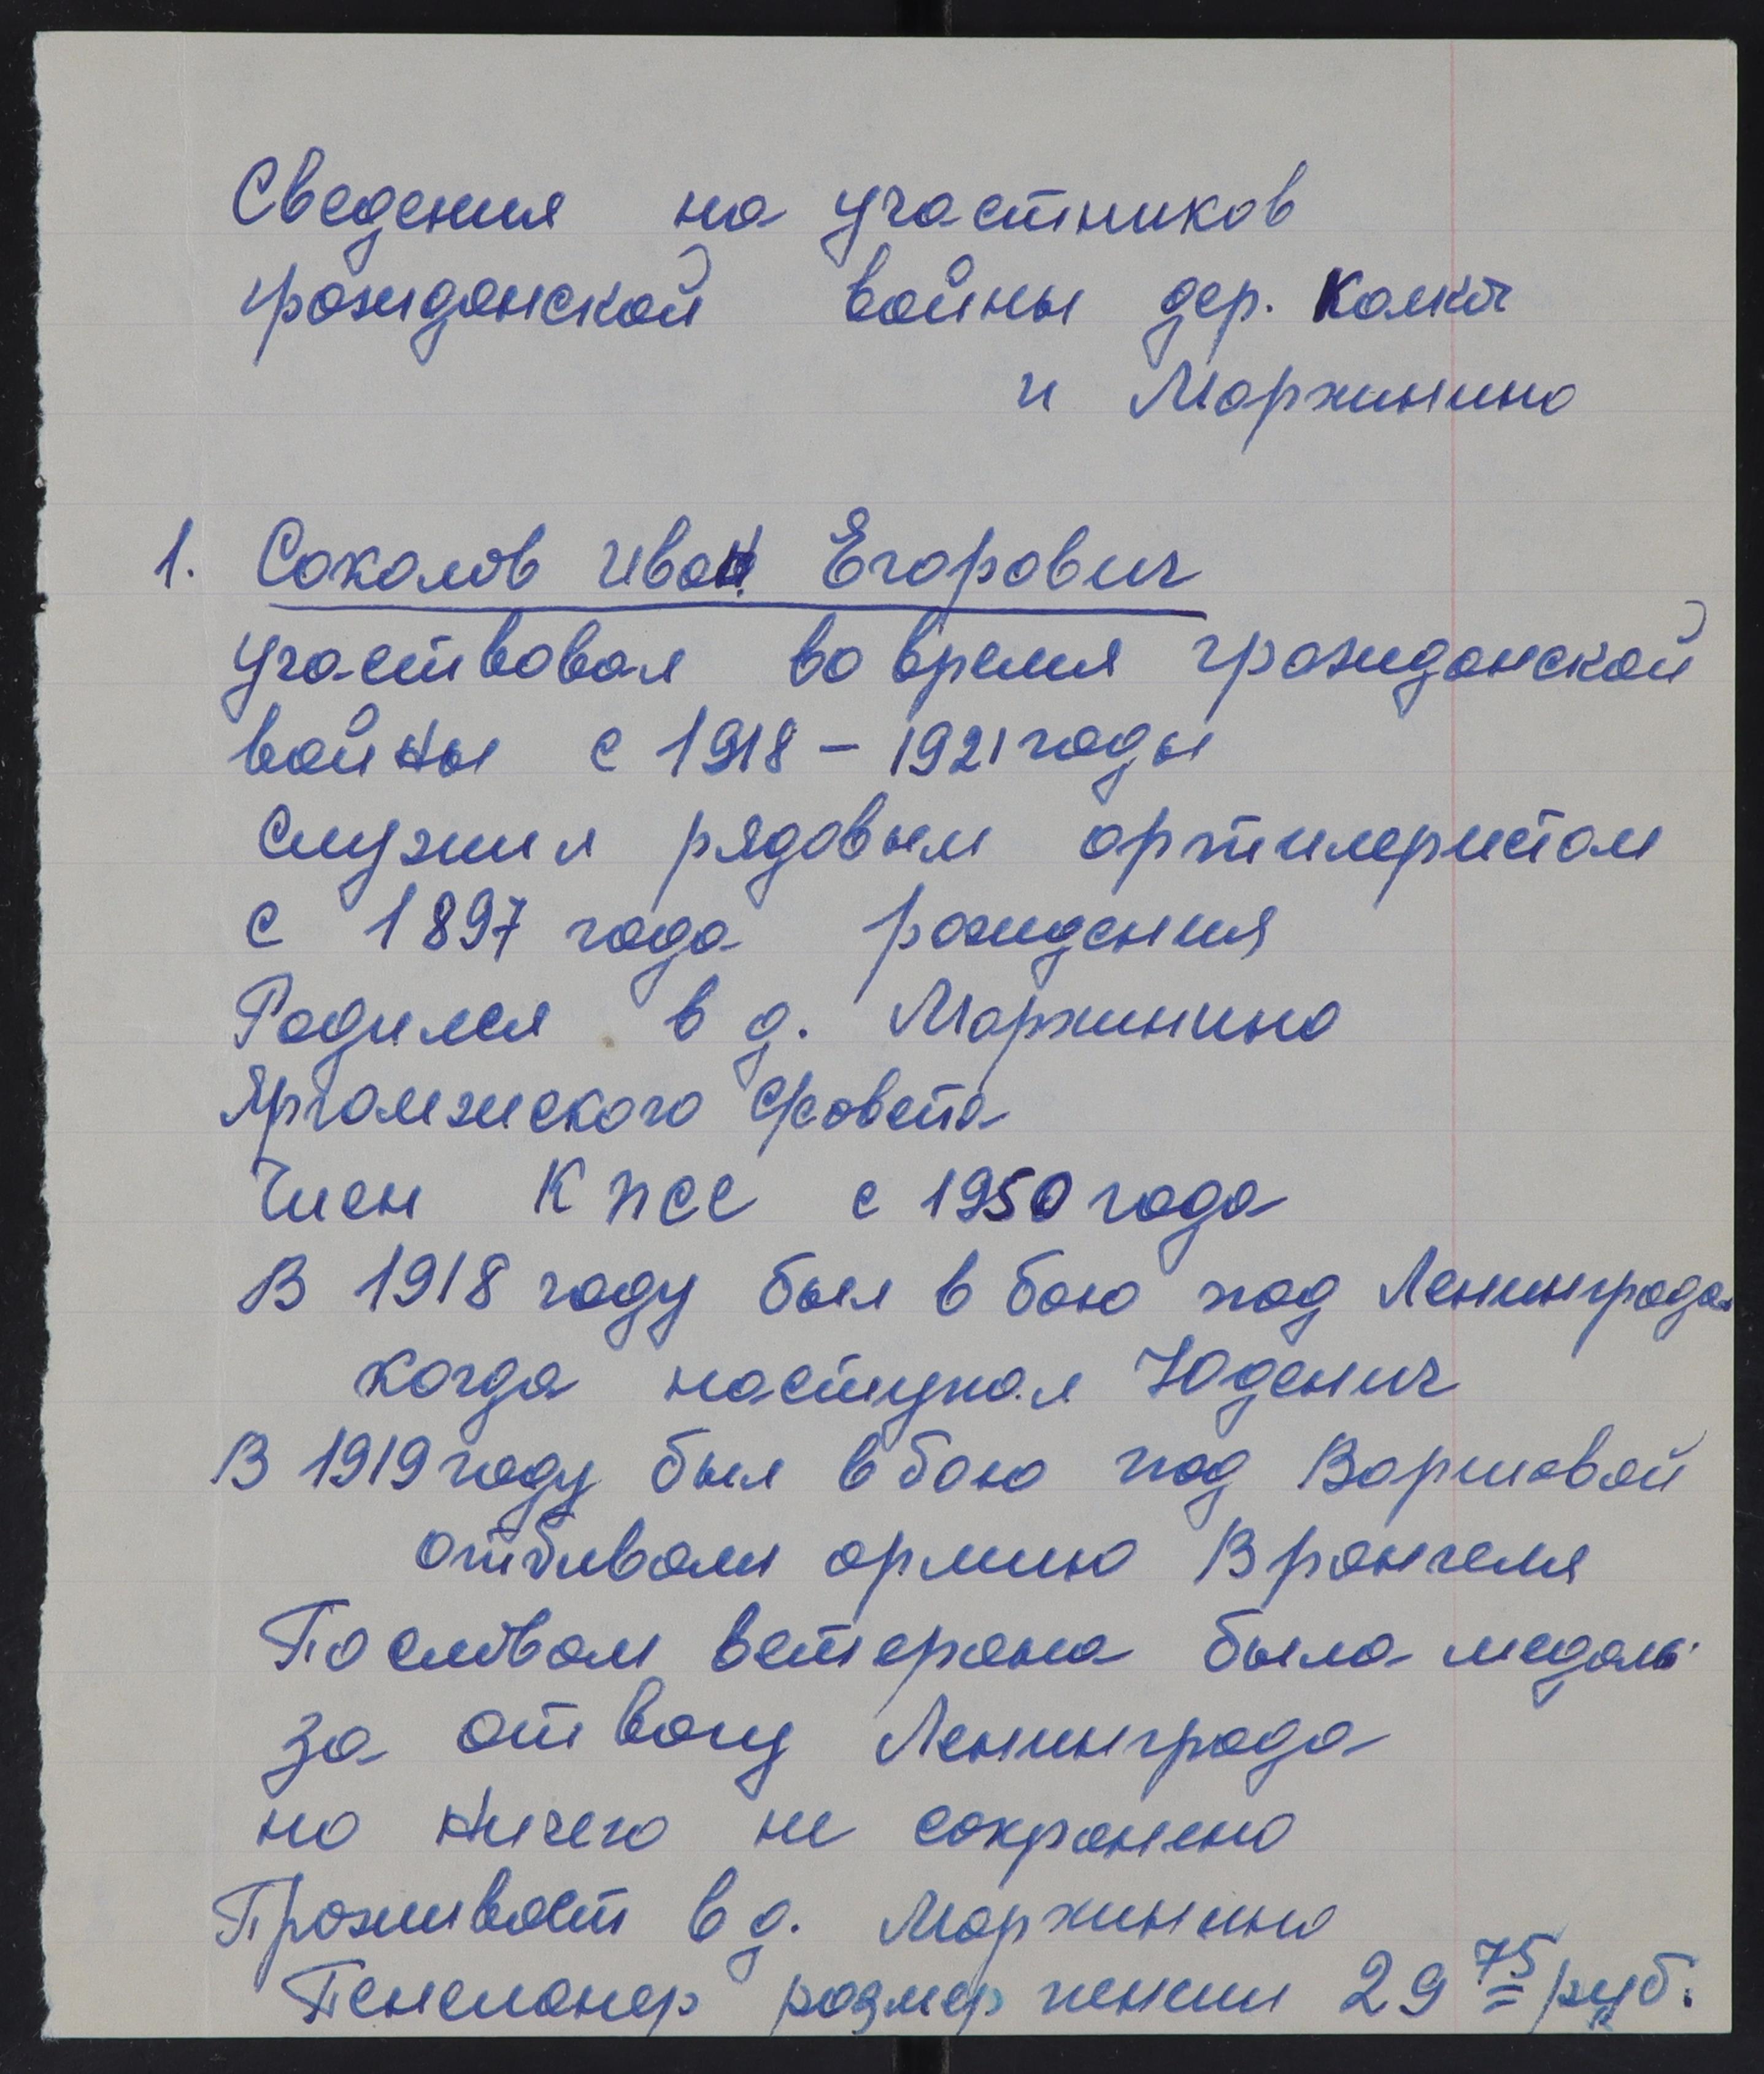 Сведения на участников
гражданской войны дер. Колкач
и Маржинино
1. Соколов Иван Егорович
участвовал во время гражданской
войны с 1918 – 1921 годы
Служил рядовым артилеристом
с 1897 года рождения
Родился в д. Маржинино
Яргомжского с/совета
Член КПСС с 1950 года
В 1918 году был в бою под Ленинградом
когда наступал Юденич
В 1919 году был в бою под Варшавой
отбивали армию Врангеля
По словам ветерана была медаль
за отвагу Ленинграда
но ничего не сохранено
Проживает в д. Маржинино
Пенсионер размер пенсии 29 75 руб.